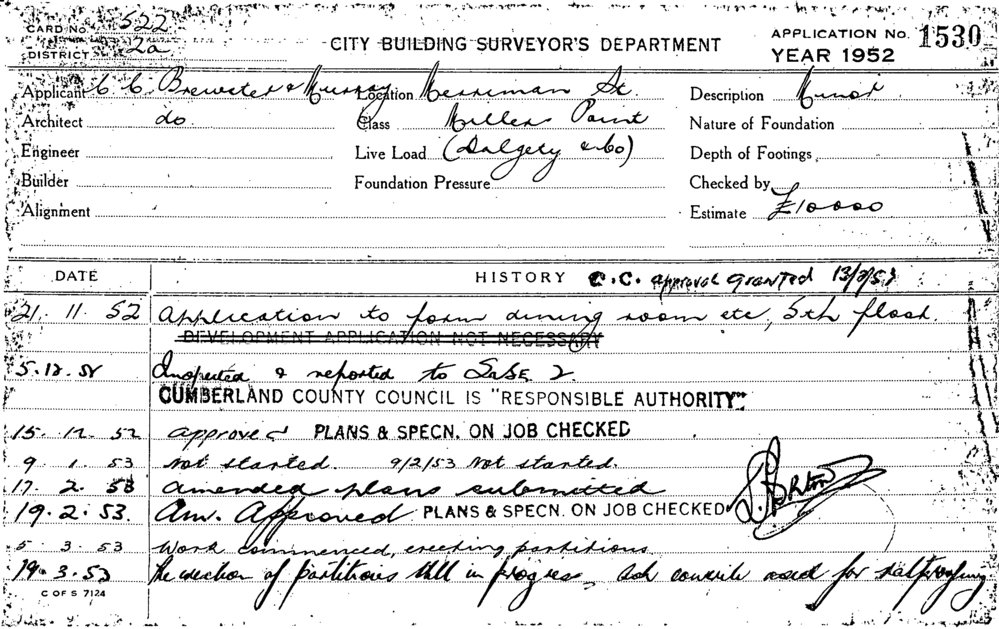 CARD No. 522
DISTRICT 2a
CITY BUILDING SURVEYOR'S DEPARTMENT
APPLICATION No. 1530
YEAR 1952
Applicant C C Brewster & Murray Location Merriman St. Description Minor
Architect do Class Millers Point Nature of Foundation
Engineer Live Load (Dalgety & Co) Depth of Footings
Builder Foundation Pressure Checked by
Alignment Estimate £10000
DATE HISTORY C.C. approval granted 13/2/53
21. 11. 52 Application to form dining room etc, 5th floor.
DEVELOPMENT APPLICATION NOT NECESSARY
5.12.52 Inspected & reported to
CUMBERLAND COUNTY COUNCIL IS "RESPONSIBLE AUTHORITY"
15. 12. 52 approved PLANS & SPECN. ON JOB CHECKED
9. 1. 53 not started. 9/2/53 Not started.
17. 2. 53 amended plans submitted
19.2.53. Am. Approved PLANS & SPECN. ON JOB CHECKED
5. 3. 53 Work commenced, erecting partitions
19.3.53 The erection of partitions still in progress, Ash concrete used for
C OF S 7124